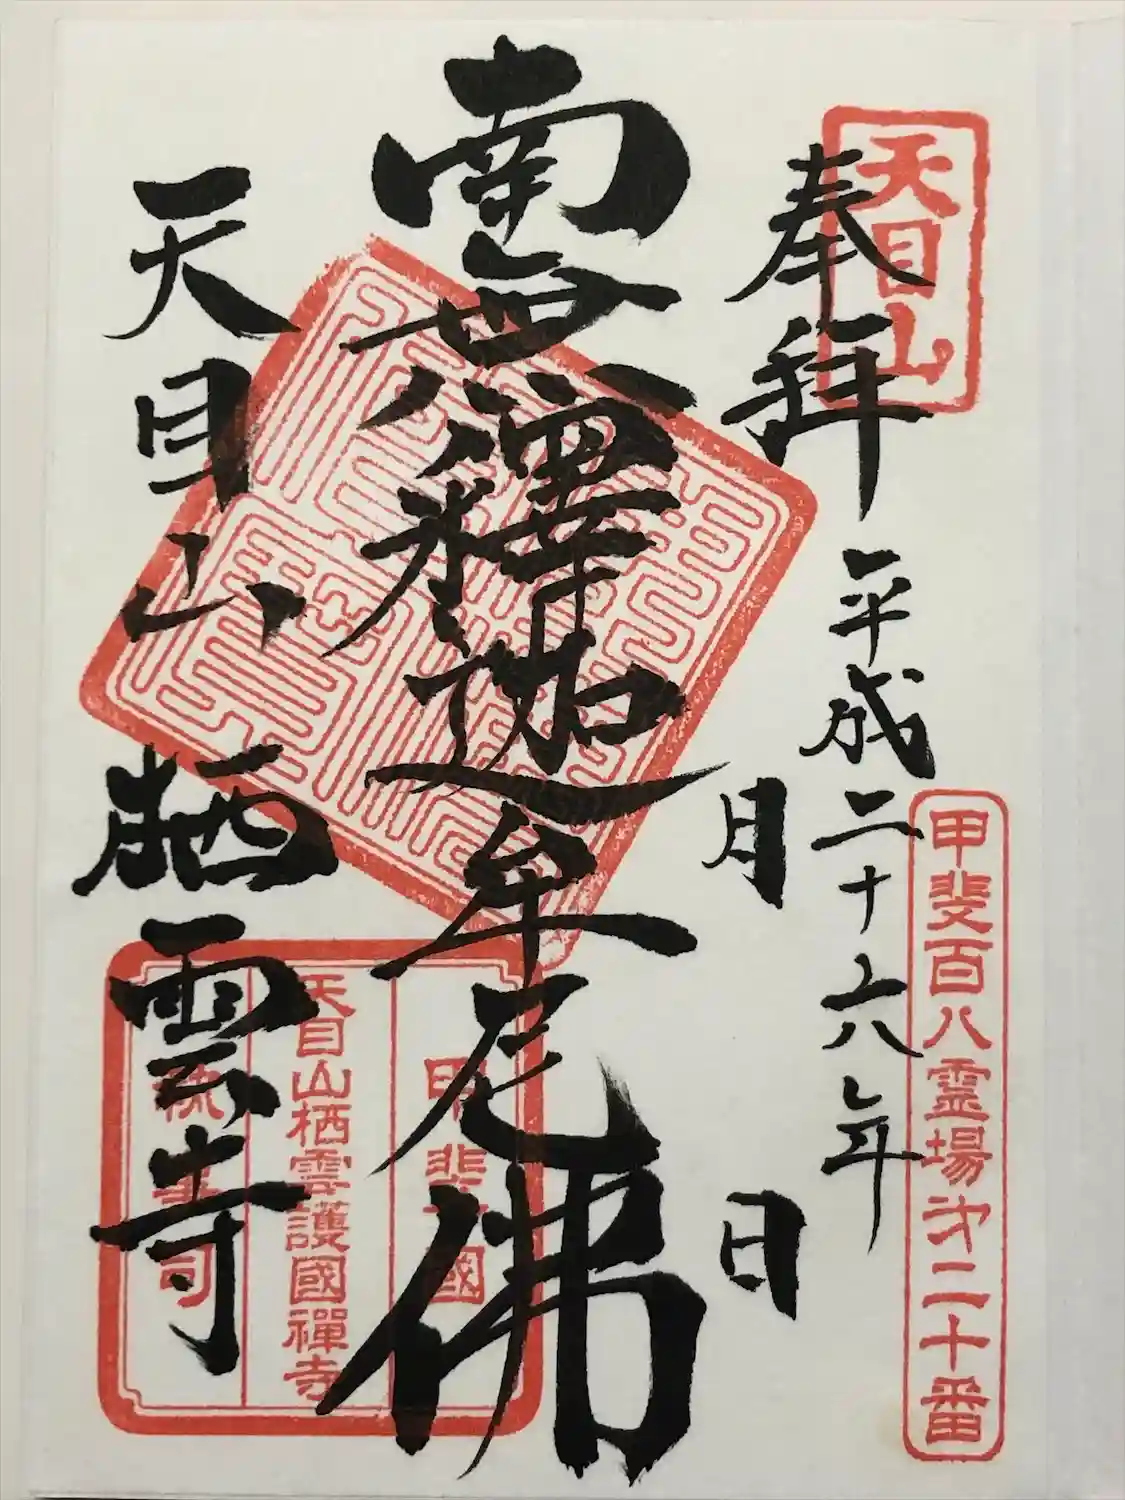 天目山
奉拝
平成二十六年
月 日
甲斐百八霊場㐧二十番
南無釋迦牟尼佛
天目山 栖雲寺
甲斐國
天目山栖雲護國禪寺